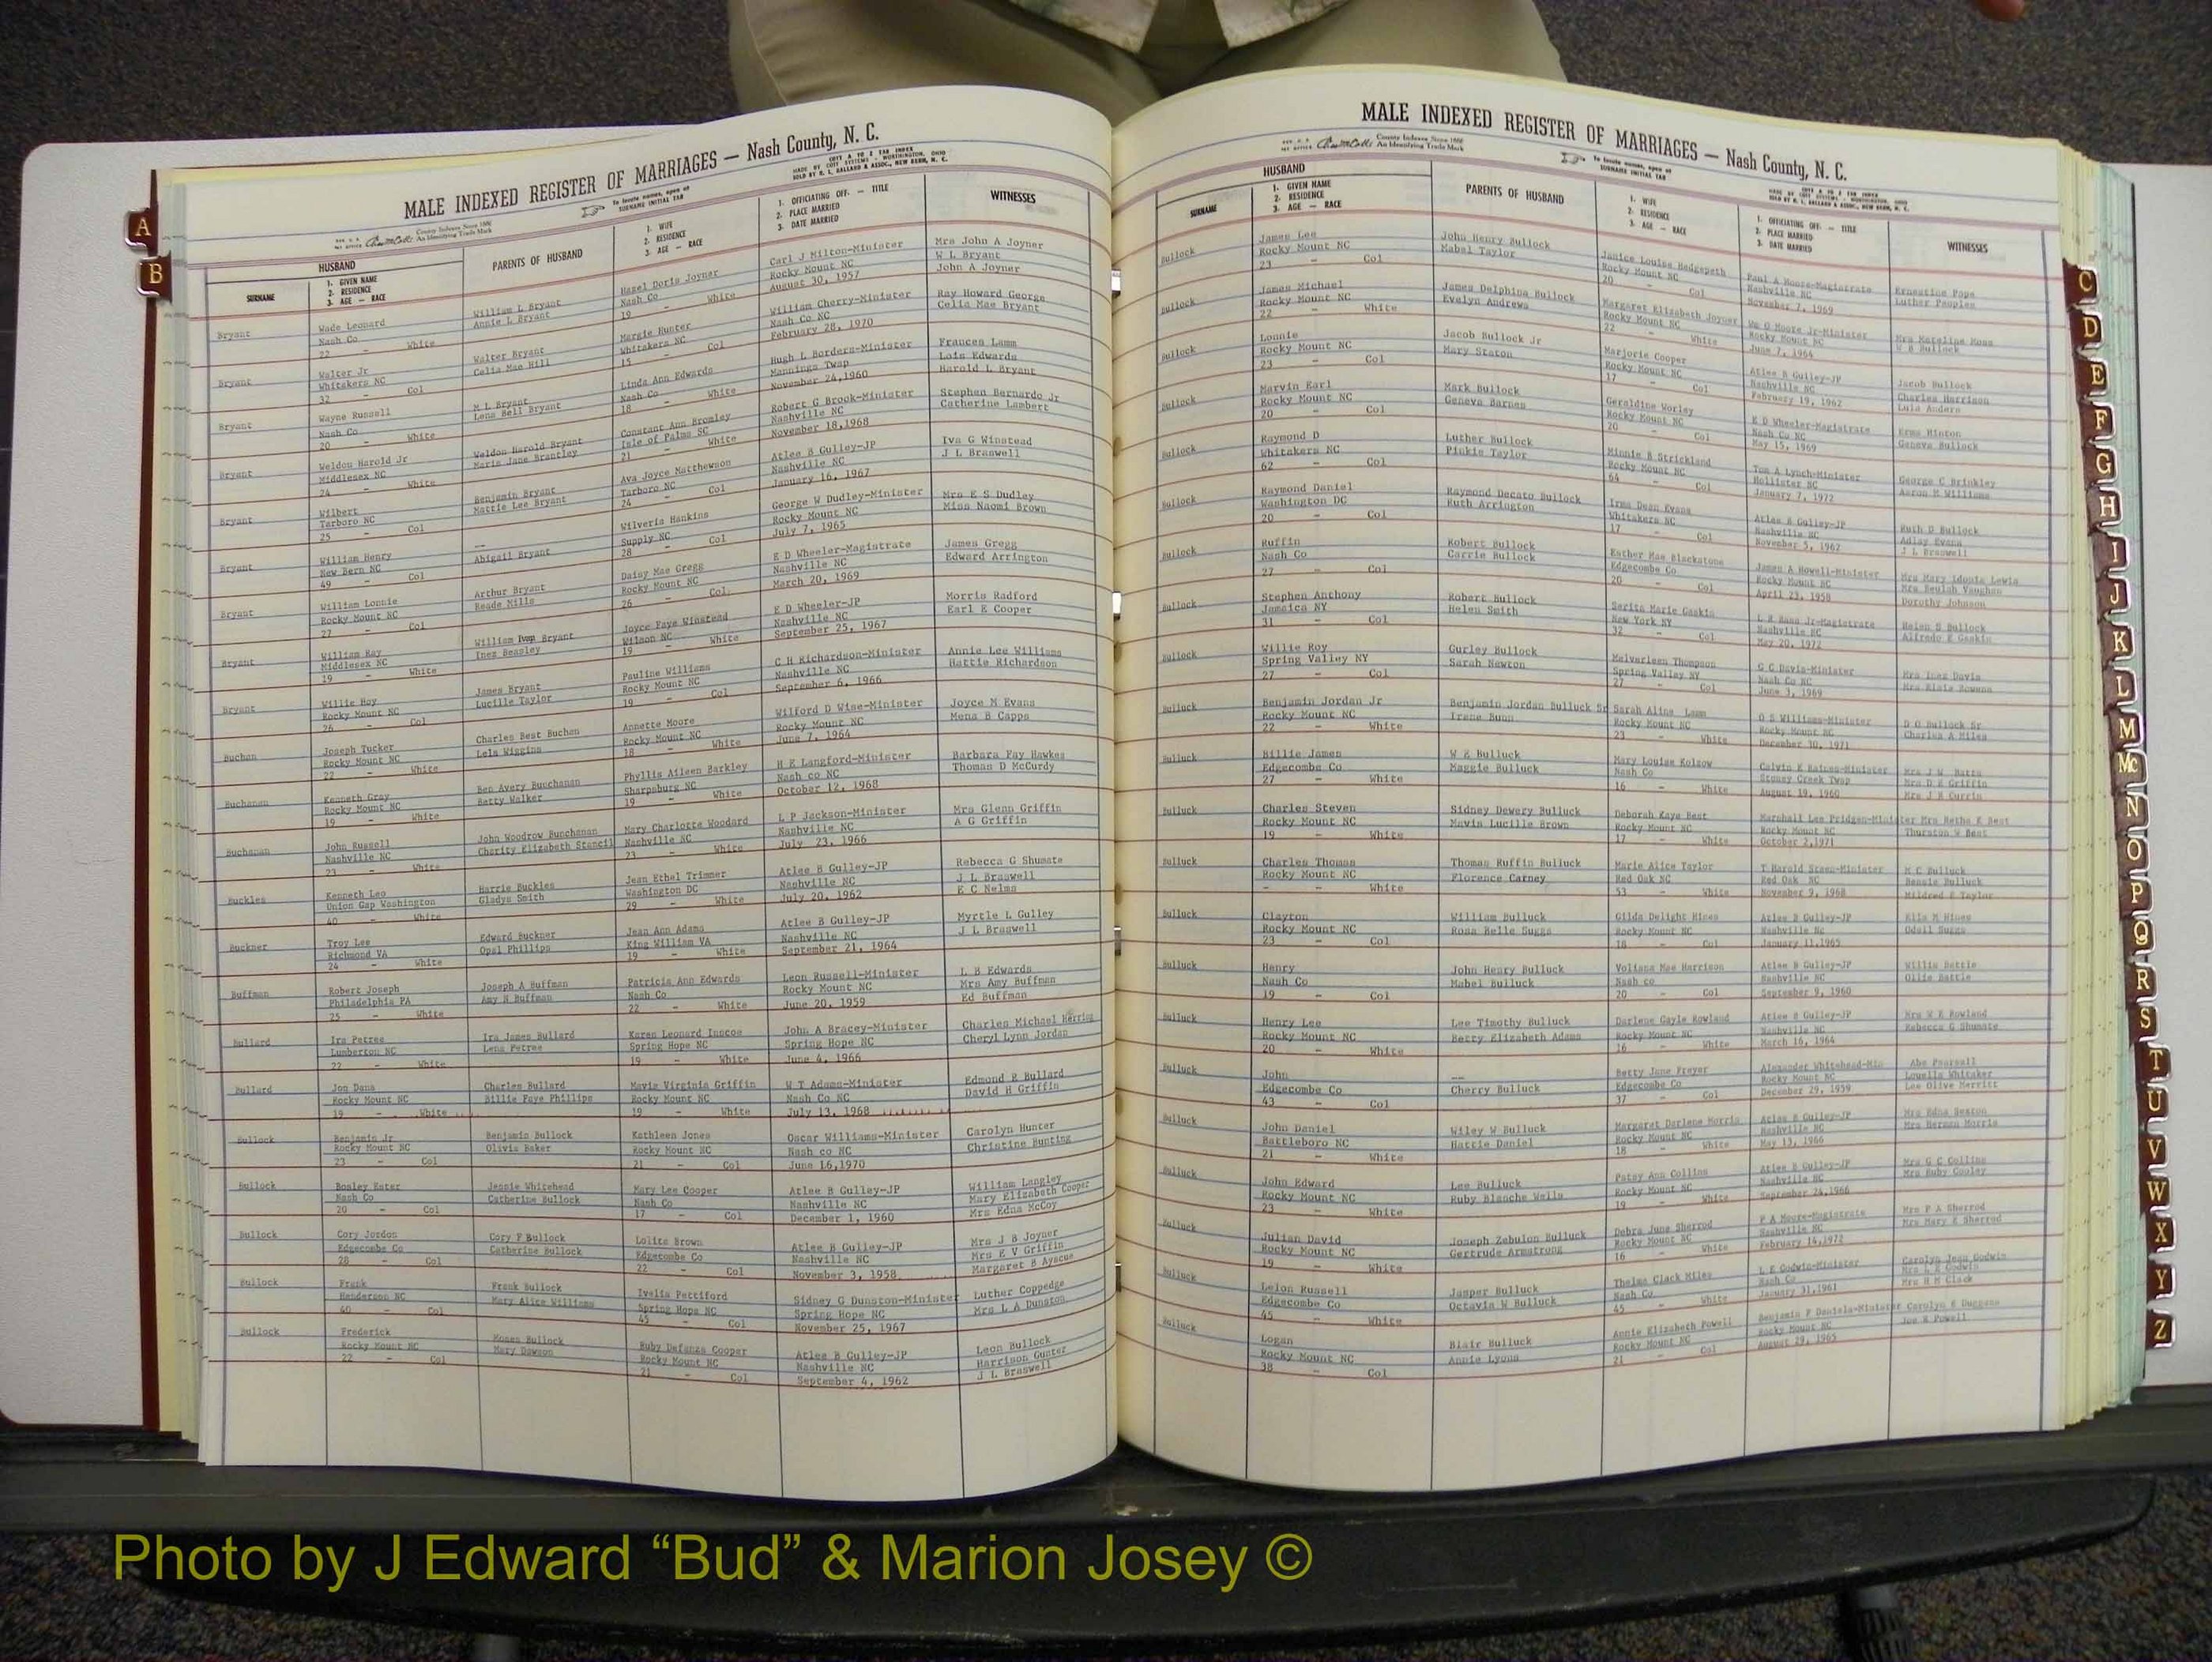 MALE INDEXED REGISTER OF MARRIAGES — Nash County, N. C.
County Indexes Since 1888
An Identifying Trade Mark
To locate names, open at
SURNAME INITIAL TAB
HUSBAND
SURNAME
1. GIVEN NAME
2. RESIDENCE
3. AGE — RACE
PARENTS OF HUSBAND
1. WIFE
2. RESIDENCE
3. AGE — RACE
1. OFFICIATING OFF. — TITLE
2. PLACE MARRIED
3. DATE MARRIED
WITNESSES
Bryant Wade Leonard William L Bryant Hazel Doris Joyner Carl J Milton-Minister Mrs John A Joyner
Nash Co Annie L Bryant Nash Co Rocky Mount NC W L Bryant
22 - White 19 - White August 30, 1957 John A Joyner
Bryant Walter Jr Walter Bryant Margie Hunter William Cherry-Minister Ray Howard George
Whitakers NC Celia Mae Hill Whitakers NC Nash Co NC Celia Mae Bryant
32 - Col 15 - Col February 28, 1970
Bryant Wayne Russell M L Bryant Linda Ann Edwards Hugh L Borders-Minister Frances Lamm
Nash Co Lena Bell Bryant Nash Co Mannings Twsp Lois Edwards
20 - White 18 - White November 24,1960 Harold L Bryant
Bryant Weldon Harold Jr Weldon Harold Bryant Constant Ann Bromley Robert G Brook-Minister Stephen Bernardo Jr
Middlesex NC Marie Jane Brantley Isle of Palms SC Nashville NC Catherine Lambert
24 - White 21 - White November 18,1968
Bryant Wilbert Benjamin Bryant Ava Joyce Matthewson Atlee B Gulley-JP Iva G Winstead
Tarboro NC Mattie Lee Bryant Tarboro NC Nashville NC J L Braswell
25 - Col 24 - Col January 16, 1967
Bryant William Henry -- Wilveria Hankins George W Dudley-Minister Mrs E S Dudley
New Bern NC Abigail Bryant Supply NC Rocky Mount NC Miss Naomi Brown
49 - Col 28 - Col July 7, 1965
Bryant William Lonnie Arthur Bryant Daisy Mae Gregg E D Wheeler-Magistrate James Gregg
Rocky Mount NC Reade Mills Rocky Mount NC Nashville NC Edward Arrington
27 - Col 26 - Col March 20, 1969
Bryant William Ray William Bryant Joyce Faye Winstead E D Wheeler-JP Morris Radford
Middlesex NC Inez Beasley Wilson NC Nashville NC Earl E Cooper
19 - White 19 - White September 25, 1967
Bryant Willie Roy James Bryant Pauline Williams C H Richardson-Minister Annie Lee Williams
Rocky Mount NC Lucille Taylor Rocky Mount NC Nashville NC Hattie Richardson
26 - Col 19 - Col September 6, 1966
Buchan Joseph Tucker Charles Best Buchan Annette Moore Wilford D Wise-Minister Joyce M Evans
Rocky Mount NC Lela Wiggins Rocky Mount NC Rocky Mount NC Mena B Capps
22 - White 18 - White June 7, 1964
Buchanan Kenneth Gray Ben Avery Buuchanan Phyllis Aileen Barkley H E Langford-Minister Barbara Fay Hawkes
Rocky Mount NC Betty Walker Sharpsburg NC Nash co NC Thomas D McCurdy
19 - White 19 - White October 12, 1968
Buchanan John Russell John Woodrow Bunchanan Mary Charlotte Woodard L P Jackson-Minister Mrs Glenn Griffin
Nashville NC Charity Elizabeth Stancil Nashville NC Nashville NC A G Griffin
23 - White 23 - White July 23, 1966
Buckles Kenneth Leo Harrie Buckles Jean Ethel Trimmer Atlee B Gulley-JP Rebecca G Shumate
Union Gap Washington Gladys Smith Washington DC Nashville NC J L Braswell
40 - White 29 - White July 20, 1962 E C Nelms
Buckner Troy Lee Edward Buckner Jean Ann Adams Atlee B Gulley-JP Myrtle L Gulley
Richmond VA Opal Phillips King William VA Nashville NC J L Braswell
24 - White 19 - White September 21, 1964
Buffman Robert Joseph Joseph A Buffman Patricia Ann Edwards Leon Russell-Minister L B Edwards
Philadelphia PA Amy H Buffman Nash Co Rocky Mount NC Mrs Amy Buffman
25 - White 22 - White June 20, 1959 Ed Buffman
Bullard Ira Petree Ira James Bullard Karen Leonard Inscoe John A Bracey-Minister Charles Michael Herring
Lumberton NC Lena Petree Spring Hope NC Spring Hope NC Cheryl Lynn Jordan
22 - White 19 - White June 4, 1966
Bullard Jon Dana Charles Bullard Mavis Virginia Griffin W T Adams-Minister Edmond R Bullard
Rocky Mount NC Billie Faye Phillips Rocky Mount NC Nash Co NC David H Griffin
19 - White 19 - White July 13, 1968
Bullock Benjamin Jr Benjamin Bullock Kathleen Jones Oscar Williams-Minister Carolyn Hunter
Rocky Mount NC Olivia Baker Rocky Mount NC Nash co NC Christine Bunting
23 - Col 21 - Col June 16,1970
Bullock Bosley Ester Jessie Whitehead Mary Lee Cooper Atlee B Gulley-JP William Langley
Nash Co Catherine Bullock Nash Co Nashville NC Mary Elizabeth Cooper
20 - Col 17 - Col December 1, 1960 Mrs Edna McCoy
Bullock Cory Jordon Cory F Bullock Lolite Brown Atlee B Gulley-JP Mrs J B Joyner
Edgecombe Co Catherine Bullock Edgecombe Co Nashville NC Mrs E V Griffin
28 - Col 22 - Col November 3, 1958 Margaret B Ayscue
Bullock Frank Frank Bullock Ivelia Pettiford Sidney G Dunston-Minister Luther Coppedge
Henderson NC Mary Alice Williams Spring Hope NC Spring Hope NC Mrs L A Dunston
40 - Col 45 - Col November 25, 1967
Bullock Frederick Moses Bullock Ruby Defanza Cooper Atlee B Gulley-JP Leon Bullock
Rocky Mount NC Mary Dawson Rocky Mount NC Nashville NC Harrison Gunter
22 - Col 21 - Col September 4, 1962 J L Braswell
MALE INDEXED REGISTER OF MARRIAGES — Nash County, N. C.
County Indexes Since 1888
An Identifying Trade Mark
To locate names, open at
SURNAME INITIAL TAB
HUSBAND
SURNAME
1. GIVEN NAME
2. RESIDENCE
3. AGE — RACE
PARENTS OF HUSBAND
1. WIFE
2. RESIDENCE
3. AGE — RACE
1. OFFICIATING OFF. — TITLE
2. PLACE MARRIED
3. DATE MARRIED
WITNESSES
Bullock James Lee John Henry Bullock Janice Louise Hedgepeth Paul A Moore-Magistrate Ernestine Pope
Rocky Mount NC Mabel Taylor Rocky Mount NC Nashville NC Luther Peoples
23 - Col 20 - Col November 7, 1969
Bullock James Michael James Delphina Bullock Margaret Elizabeth Joyner Wm O Moore Jr-Minister Mrs Kateline Moss
Rocky Mount NC Evelyn Andrews Rocky Mount NC Rocky Mount NC W B Bullock
22 - White 22 - White June 7, 1964
Bullock Lonnie Jacob Bullock Jr Marjorie Cooper Atlee B Gulley-JP Jacob Bullock
Rocky Mount NC Mary Staton Rocky Mount NC Nashville NC Charles Harrison
23 - Col 17 - Col February 19, 1962 Lula Anders
Bullock Marvin Earl Mark Bullock Geraldine Worley E D Wheeler-Magistrate Erma Hinton
Rocky Mount NC Geneva Barnes Rocky Mount NC Nash Co NC Geneva Bullock
20 - Col 20 - Col May 15, 1969
Bullock Raymond D Luther Bullock Minnie B Strickland Tom A Lynch-Minister George C Brinkley
Whitakers NC Pinkie Taylor Rocky Mount NC Hollister NC Aaron M Williams
62 - Col 64 - Col January 7, 1972
Bullock Raymond Daniel Raymond Decato Bullock Irma Dean Evans Atlee B Gulley-JP Ruth D Bullock
Washington DC Ruth Arrington Whitakers NC Nashville NC Adlay Evans
20 - Col 17 - Col November 5, 1962 J L Braswell
Bullock Ruffin Robert Bullock Esther Mae Blackstone James A Howell-Minister Mrs Mary Idonia Lewis
Nash Co Carrie Bullock Edgecombe Co Rocky Mount NC Mrs Beulah Vaughan
27 - Col 20 - Col April 23, 1958 Dorothy Johnson
Bullock Stephen Anthony Robert Bullock Sarita Marie Gaskin L R Bass Jr-Magistrate Helen S Bullock
Jamaica NY Helen Smith New York NY Nashville NC Alfredo E Gaskin
31 - Col 32 - Col May 20, 1972
Bullock Willie Roy Gurley Bullock Melvarleen Thompson G C Davis-Minister Mrs Inez Davis
Spring Valley NY Sarah Newton Spring Valley NY Nash Co NC Mrs Elsie Bowens
27 - Col 27 - Col June 3, 1969
Bulluck Benjamin Jordan Jr Benjamin Jordan Bulluck Sr Sarah Aline Lamm O S Williams-Minister D O Bullock Sr
Rocky Mount NC Irene Bunn Rocky Mount NC Rocky Mount NC Charles A Miles
22 - White 23 - White December 30, 1971
Bulluck Billie James W E Bulluck Mary Louise Kolsow Calvin E Baines-Minister Mrs J W Batts
Edgecombe Co Maggie Bulluck Nash Co Stoney Creek Twsp Mrs D E Griffin
27 - White 16 - White August 19, 1960 Mrs J H Currin
Bulluck Charles Steven Sidney Dewery Bulluck Deborah Kaye Best Marshall Lee Pridgen-Minister Mrs Retha E Best
Rocky Mount NC Mavis Lucille Brown Rocky Mount NC Rocky Mount NC Thurston W Best
19 - White 17 - White October 2,1971
Bulluck Charles Thomas Thomas Ruffin Bulluck Marie Alice Taylor T Harold Steen-Minister M C Bulluck
Rocky Mount NC Florence Carney Red Oak NC Red Oak NC Bessie Bulluck
- - White 53 - White November 9, 1968 Mildred E Taylor
Bulluck Clayton William Bulluck Gilda Delight Hines Atlee B Gulley-JP Ella M Hines
Rocky Mount NC Rosa Belle Suggs Rocky Mount NC Nashville NC Odell Suggs
23 - Col 18 - Col January 11,1965
Bulluck Henry John Henry Bulluck Voliana Mae Harrison Atlee B Gulley-JP Willie Battle
Nash Co Mabel Bulluck Nash co Nashville NC Ollie Battle
19 - Col 20 - Col September 9, 1960
Bulluck Henry Lee Lee Timothy Bulluck Darlene Gayle Rowland Atlee B Gulley-JP Mrs W E Rowland
Rocky Mount NC Betty Elizabeth Adams Rocky Mount NC Nashville NC Rebecca G Shumate
20 - White 16 - White March 16, 1964
Bulluck John -- Betty Jane Freyer Alexander Whitehead-Min Abe Pearsall
Edgecombe Co Cherry Bulluck Edgecombe Co Rocky Mount NC Louella Whitaker
43 - Col 37 - Col December 29, 1959 Lee Olive Merritt
Bulluck John Daniel Wiley W Bulluck Margaret Darlene Morris Atlee B Gulley-JP Mrs Edna Sexton
Battleboro NC Hattie Daniel Rocky Mount NC Nashville NC Mrs Herman Morris
21 - White 18 - White May 13, 1966
Bulluck John Edward Lee Bulluck Patsy Ann Collins Atlee B Gulley-JP Mrs G C Collins
Rocky Mount NC Ruby Blanche Wells Rocky Mount NC Nashville NC Mrs Ruby Cooley
23 - White 19 - White September 24,1966
Bulluck Julian David Joseph Zebulon Bulluck Debra June Sherrod P A Moore-Magistrate Mrs P A Sherrod
Rocky Mount NC Gertrude Armstrong Rocky Mount NC Nashville NC Mrs Mary E Sherrod
19 - White 16 - White February 14,1972
Bulluck Lelon Russell Jasper Bulluck Thelma Clack Miles L E Godwin-Minister Carolyn Jean Godwin
Edgecombe Co Octavia W Bulluck Nash Co Nash Co Mrs L E Godwin
45 - White 45 - White January 31,1961 Mrs H M Clack
Bulluck Logan Blair Bulluck Annie Elizabeth Powell Benjamin F Daniels-Minister Carolyn E Duggens
Rocky Mount NC Annie Lyons Rocky Mount NC Rocky Mount NC Joe R Powell
38 - Col 21 - Col August 29, 1965
A
B
C
D
E
F
G
H
I
J
K
L
M
Mc
N
O
P
Q
R
S
T
U
V
W
X
Y
Z
Photo by J Edward “Bud” & Marion Josey ©